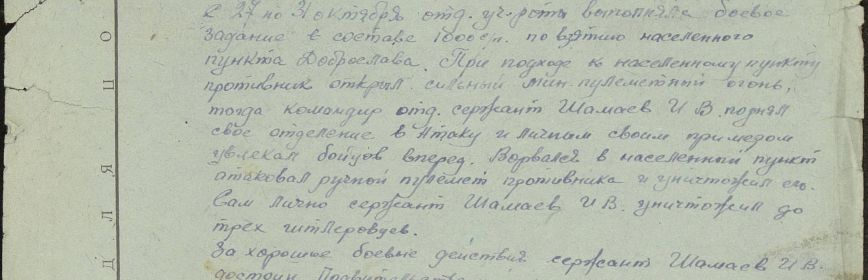 С 27 по 31 октября отд. уч. роты выполняла боевое
задание в составе по взятию населенного
пункта Доброслава. При подходе к населенному пункту
противник открыл сильный мин. пулеметный огонь,
тогда командир отд. сержант Шамаев И В. поднял
свое отделение в атаку и личным своим примером
увлекал бойцов вперед. Ворвался в населенный пункт
атаковал ручной пулемет противника и уничтожил его.
Сам лично сержант Шамаев И В. уничтожил до
трех гитлеровцев.
За хорошие боевые действия сержант Шамаев И В.
достоин Правительств
О
П
Я
Л
Д